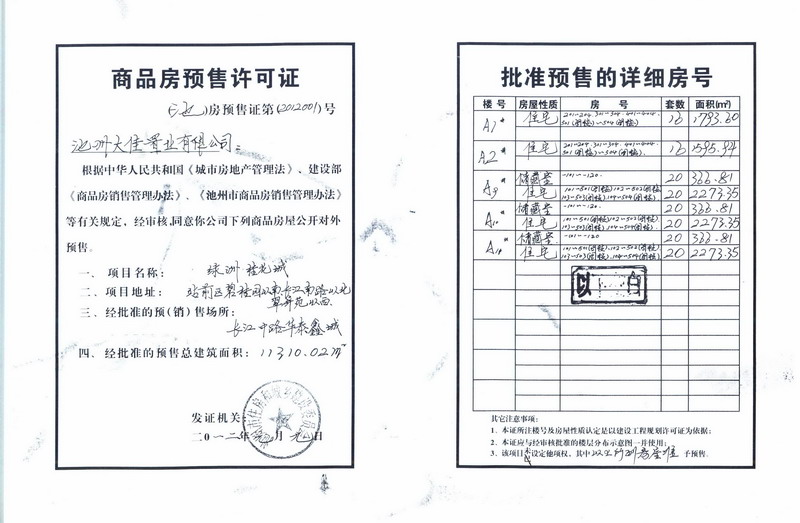 商品房预售许可证
(池)房预售证第(2012001)号
池州大佳置业有限公司:
根据中华人民共和国《城市房地产管理法》、建设部
《商品房销售管理办法》、《池州市商品房销售管理办法》
等有关规定，经审核，同意你公司下列商品房屋公开对外
预售。
一、项目名称： 绿洲桂花城
二、项目地址： 站前区碧桂园以南，长江南路以北
翠屏苑以西
三、经批准的预(销)售场所：
长江中路华泰鑫城
四、经批准的预售总建筑面积：11310.02m²
发证机关：
二0一二年元月 日
批准预售的详细房号
楼号 房屋性质 房号 套数 面积(m²)
A1# 住宅 201-204. 301-304. 401-404. 501(闭楼)-504(闭楼) 16 1793.60
A2# 住宅 201-204. 301-304. 401-404. 501(闭楼)-504(闭楼) 16 1595.94
A9# 储藏室 -101--120. 20 366.81
住宅 20 2273.35
储藏室 -101--120. 20 366.81
住宅 20 2273.35
储藏室 -101--120 20 366.81
住宅 20 2273.35
以 白
其它注意事项：
1. 本证所注楼号及房屋性质认定是以建设工程规划许可证为依据；
2. 本证应与经审核批准的楼层分布示意图一并使用；
3. 该项目未设定他项权，其中以上所列房屋准予预售。